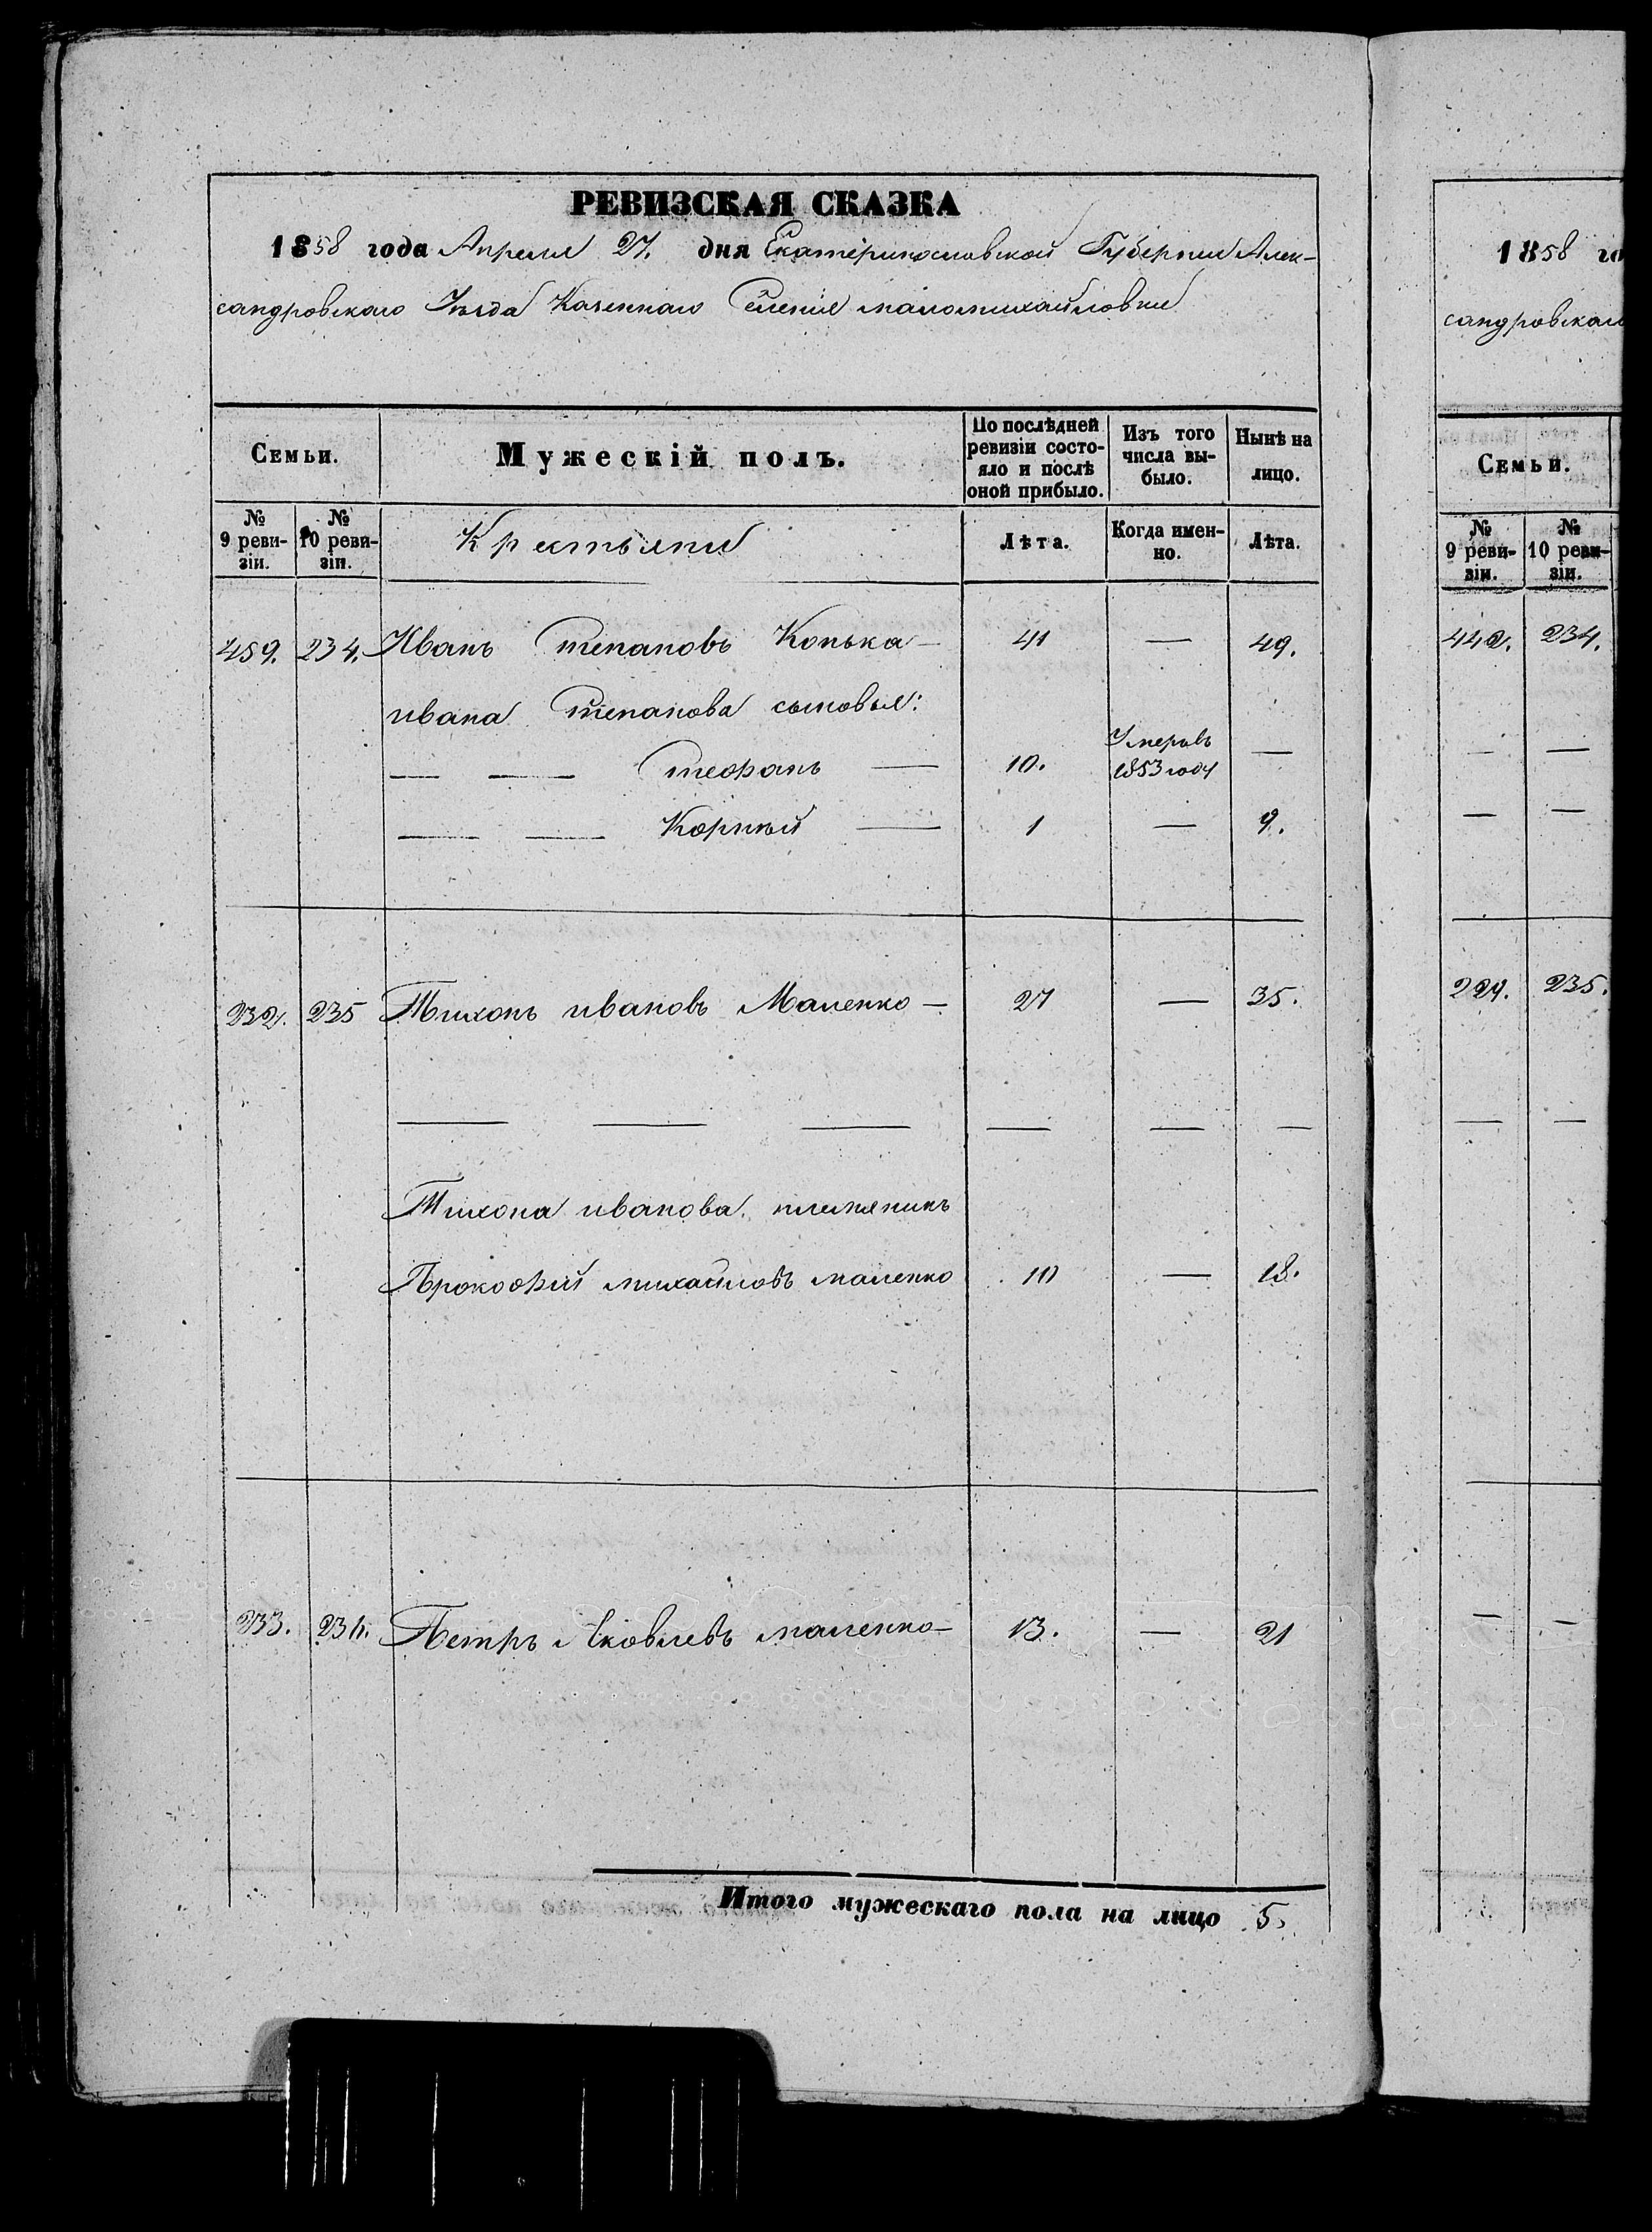 РЕВИЗСКАЯ СКАЗКА
1858 года Апреля 27. дня Екатеринославской Губернии Алек-
сандровскаго Уѣзда Казеннаго Селенія маломихайловки
Семьи.
Мужескій полъ.
По послѣдней ревизіи состо-яло и послѣ оной прибыло.
Изъ того числа вы-было.
Нынѣ на лицо.
№ 9 реви-зіи.
№ 10 реви-зіи.
Крестьяни
Лѣта.
Когда имен-но.
Лѣта.
459. 234. Иванъ Степановъ Конька — 41 — 49.
ивана Степанова сыновья:
— — Стефанъ — 10. Умеръ въ 1853 году —
— — Корнѣй — 1 — 9.
232. 235 Тихонъ ивановъ Маленко — 27 — 35.
— — — — — —
Тихона иванова племяникъ
Прокофий михайловъ маленко 10 — 18.
233. 236. Петръ Яковлевъ маленко — 13. — 21
Итого мужескаго пола на лицо 5.
1858 го
сандровскаго
Семьи.
№ 9 реви-зіи.
№ 10 реви-зіи.
442. 234.
— —
— —
229. 235.
— —
— —